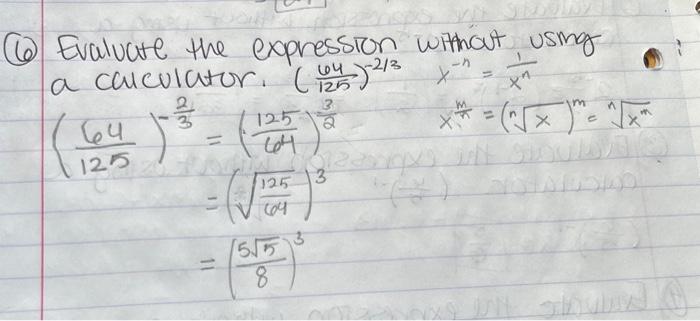 ⑥ Evaluate the expression without using
a calculator. (64/125)^-2/3 x^-n = 1/x^n
(64/125)^-2/3 = (125/64)^3/2 x^m/n = (ⁿ√x)^m = ⁿ√x^m
= (√125/64)^3
= (5√5/8)^3